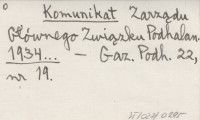 Komunikat Zarządu
Głównego Związku Podhalan.
1934... — Gaz. Podh. 22,
nr 19.